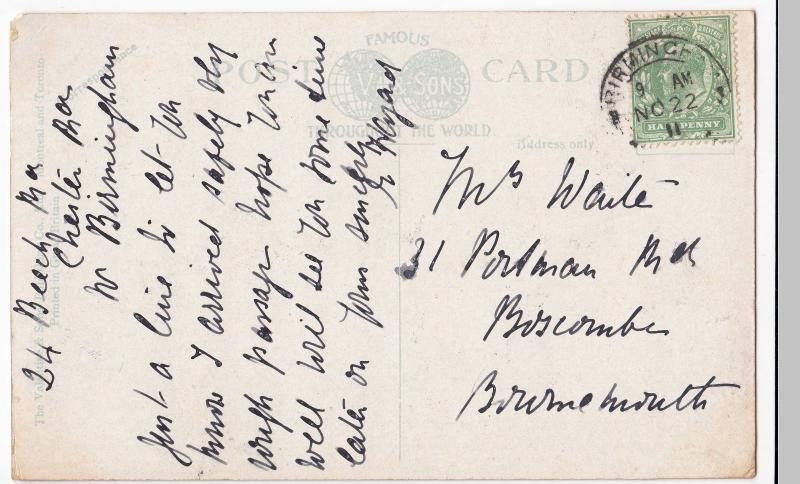 Correspondence
FAMOUS
POST CARD
V. & SONS
THROUGHOUT THE WORLD.
Address only
BIRMINGH
9 AM
NO 22
11
HALFPENNY
The Valentine & Sons Co. Montreal and Toronto
Printed in Britain
24 Beech Rd
Chester Rd
Nr Birmingham
Just a line to let you
know I arrived safely very
rough passage hope you are
well will see you some time
later on yours sincerely
E
Mrs Waite
21 Portman Rd
Boscombe
Bournemouth